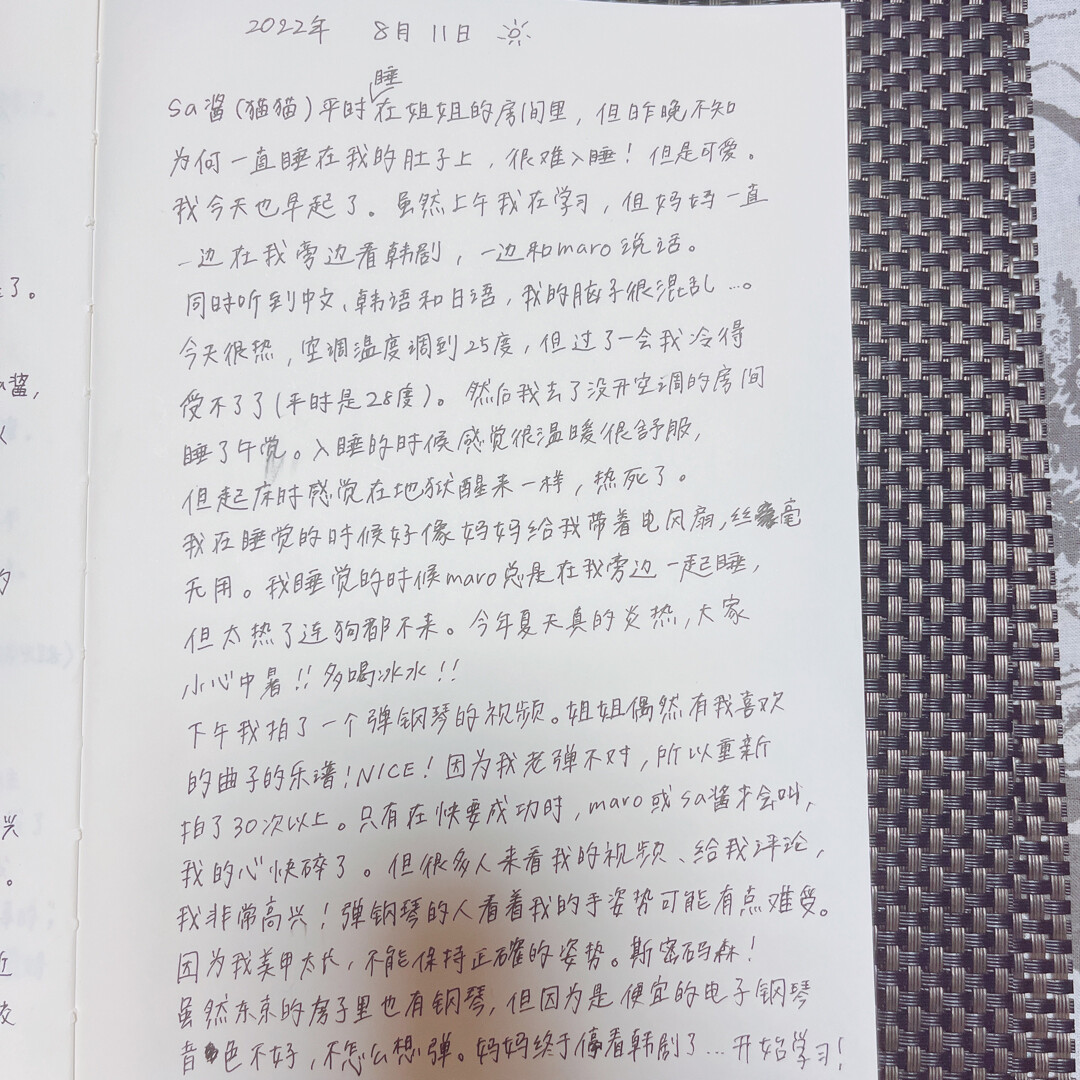 2022年 8月 11日
睡
sa酱(猫猫)平时在姐姐的房间里，但昨晚不知
为何一直睡在我的肚子上，很难入睡！但是可爱。
我今天也早起了。虽然上午我在学习，但妈妈一直
一边在我旁边看韩剧，一边和maro说话。
同时听到中文、韩语和日语，我的脑子很混乱…。
今天很热，空调温度调到25度，但过了一会我冷得
受不了了(平时是28度)。然后我去了没开空调的房间
睡了午觉。入睡的时候感觉很温暖很舒服，
但起床时感觉在地狱醒来一样，热死了。
我在睡觉的时候好像妈妈给我带着电风扇，丝毫
无用。我睡觉的时候maro总是在我旁边一起睡，
但太热了连狗都不来。今年夏天真的炎热，大家
小心中暑！！多喝冰水！！
下午我拍了一个弹钢琴的视频。姐姐偶然有我喜欢
的曲子的乐谱！NICE！因为我老弹不对，所以重新
拍了30次以上。只有在快要成功时，maro或sa酱才会叫，
我的心快碎了。但很多人来看我的视频、给我评论，
我非常高兴！弹钢琴的人看着我的手姿势可能有点难受。
因为我美甲太长，不能保持正確的姿势。斯密码森！
虽然东京的房子里也有钢琴，但因为是便宜的电子钢琴
音色不好，不怎么想弹。妈妈终于停看韩剧了…开始学习！
了。
酱，
兴
。
近